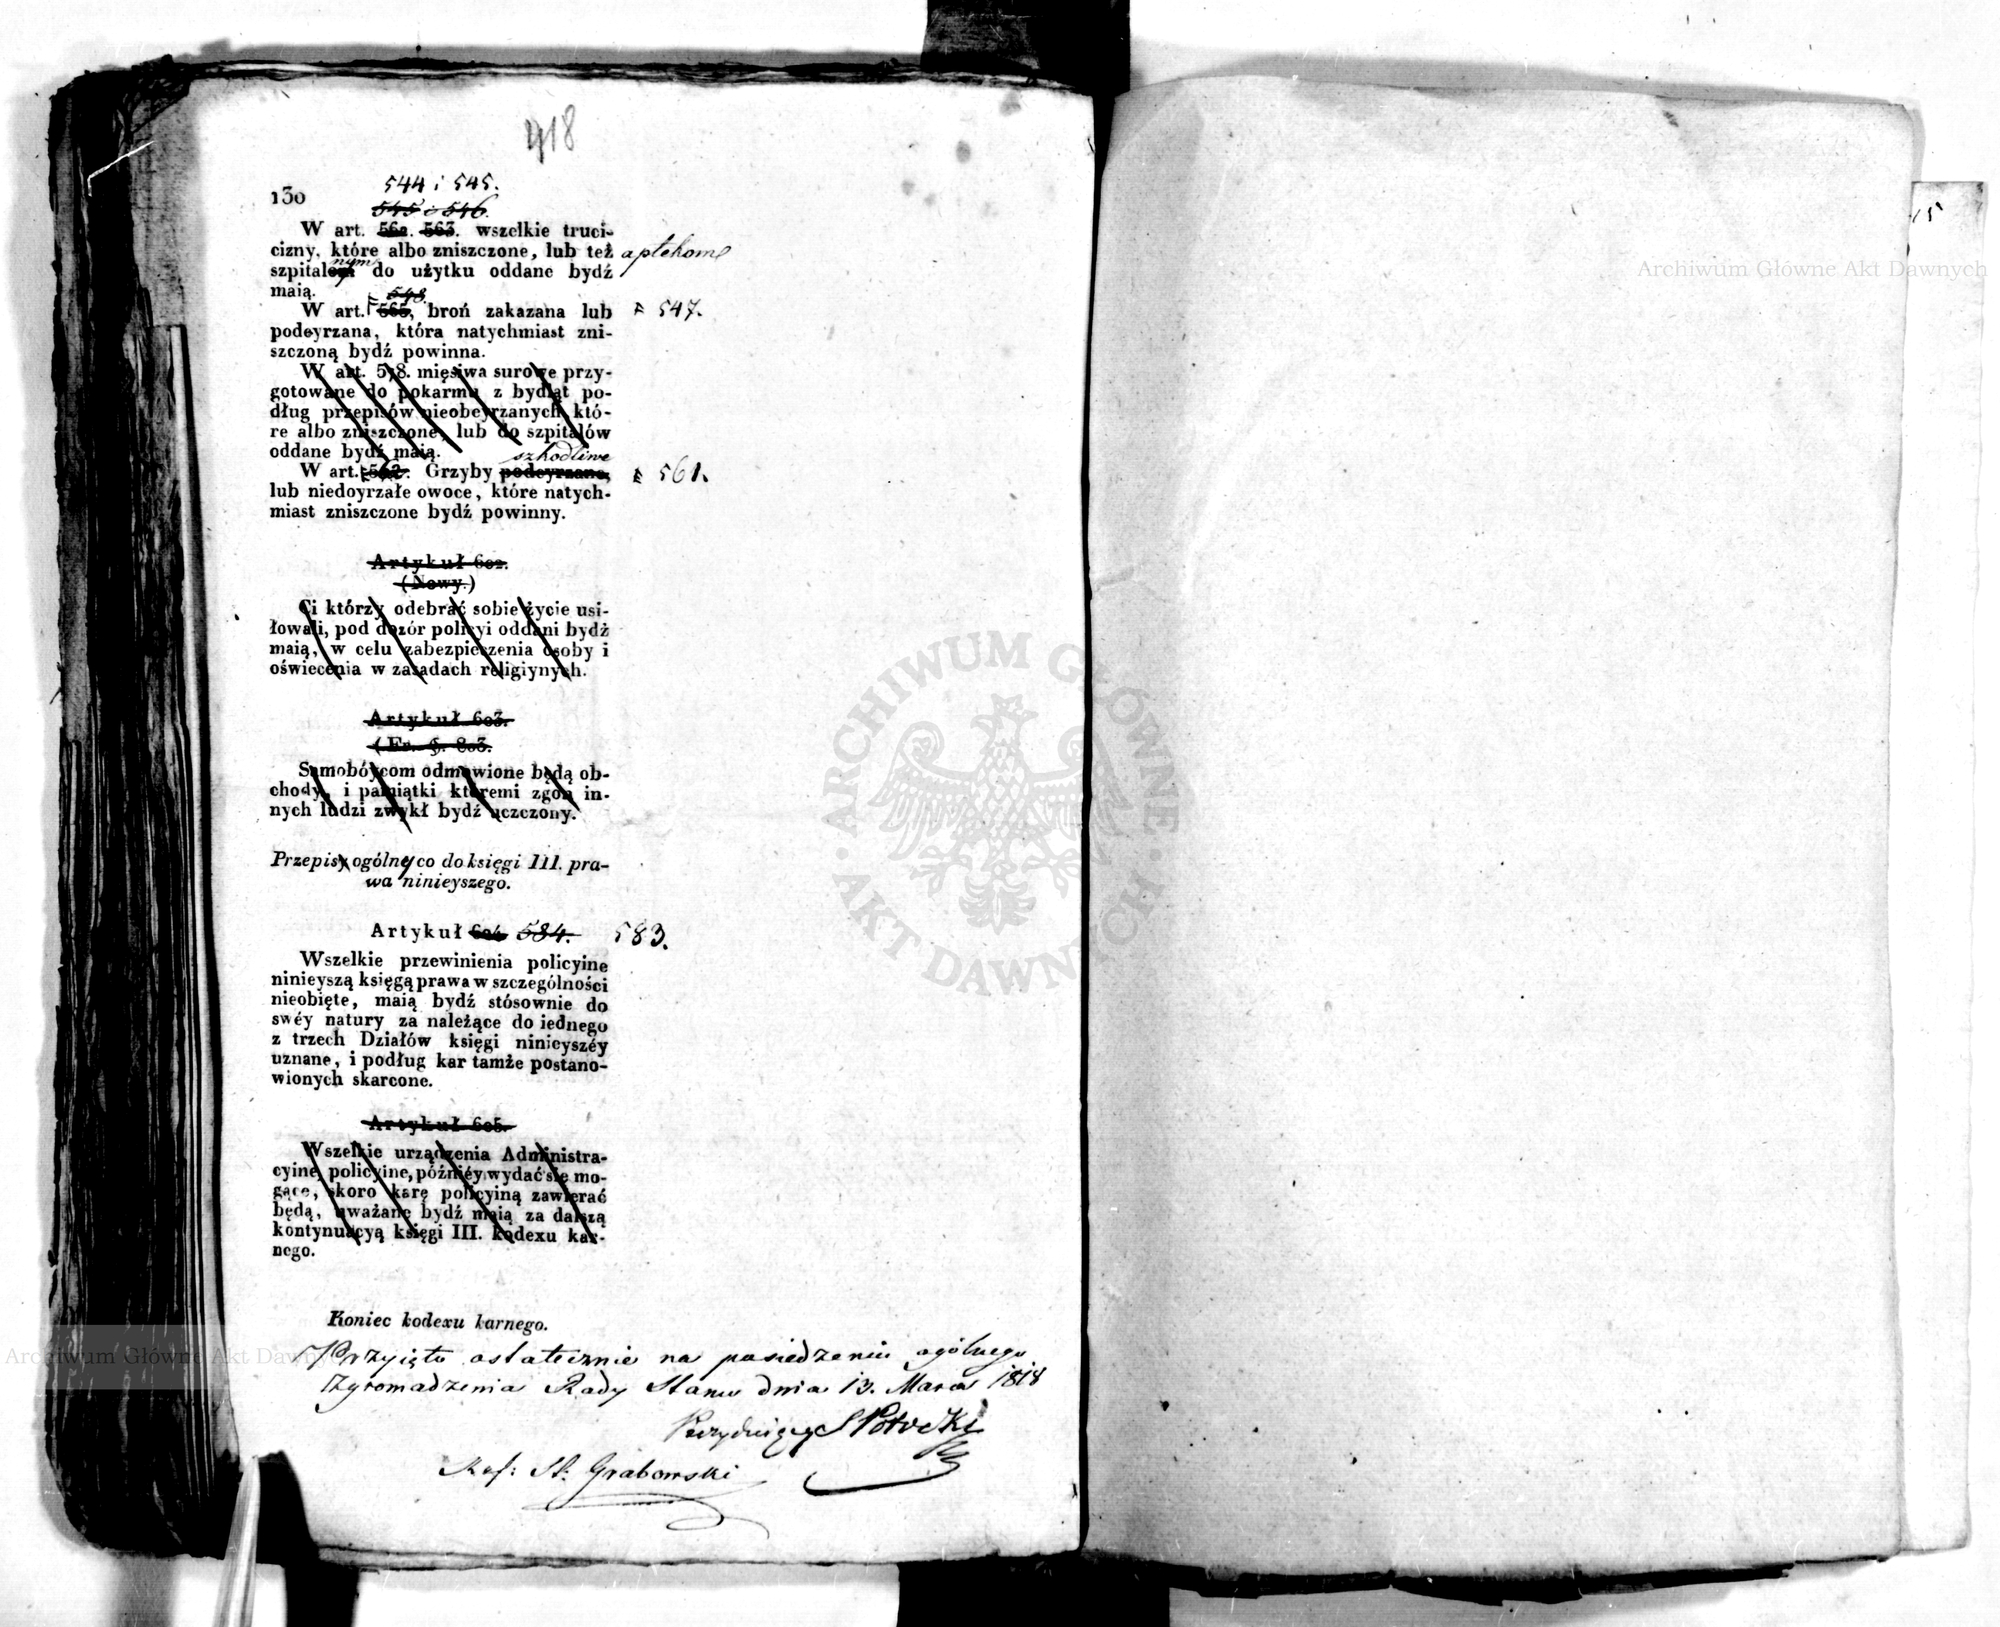 418
130
544 i 545.
545 i 546.
W art. 562. 563. wszelkie truci-
cizny, które albo zniszczone, lub też aptekom
szpitalom nym do użytku oddane bydź
maią.
548
W art. 565, broń zakazana lub 547.
podeyrzana, która natychmiast zni-
szczoną bydź powinna.
W art. 578. mięsiwa surowe przy-
gotowane do pokarmu z bydląt po-
dług przepisów nieobeyrzanych, któ-
re albo zniszczone, lub do szpitalów
oddane bydź maią.
szkodliwe
W art. 562. Grzyby podeyrzane, 561.
lub niedoyrzałe owoce, które natych-
miast zniszczone bydź powinny.
Artykuł 602.
(Nowy.)
Ci którzy odebrać sobie życie usi-
łowali, pod dozór policyi oddani bydź
maią, w celu zabezpieczenia osoby i
oświecenia w zasadach religiynych.
Artykuł 603.
(Fr. §. 803.
Samobóycom odmówione będą ob-
chody, i pamiątki któremi zgon in-
nych ludzi zwykł bydź uczczony.
Przepisy ogólny co do księgi III. pra-
wa ninieyszego.
Artykuł 604 584. 583.
Wszelkie przewinienia policyine
ninieyszą księgą prawa w szczególności
nieobięte, maią bydź stósownie do
swéy natury za należące do iednego
z trzech Działów księgi ninieyszéy
uznane, i podług kar tamże postano-
wionych skarcone.
Artykuł 605.
Wszelkie urządzenia Administra-
cyine, policyine, późniéy wydać się mo-
gące, skoro karę policyiną zawierać
będą, uważane bydź maią za dalszą
kontynuacyą księgi III. kodexu kar-
nego.
Koniec kodexu karnego.
Przyięto ostatecznie na posiedzeniu ogólnego
Zgromadzenia Rady Stanu dnia 13. Marca 1818
Prezyduiący S Potocki
Ref: St: Grabowski
15
Archiwum Główne Akt Dawnych
ARCHIWUM GŁÓWNE · AKT DAWNYCH ·
Archiwum Główne Akt Dawnych